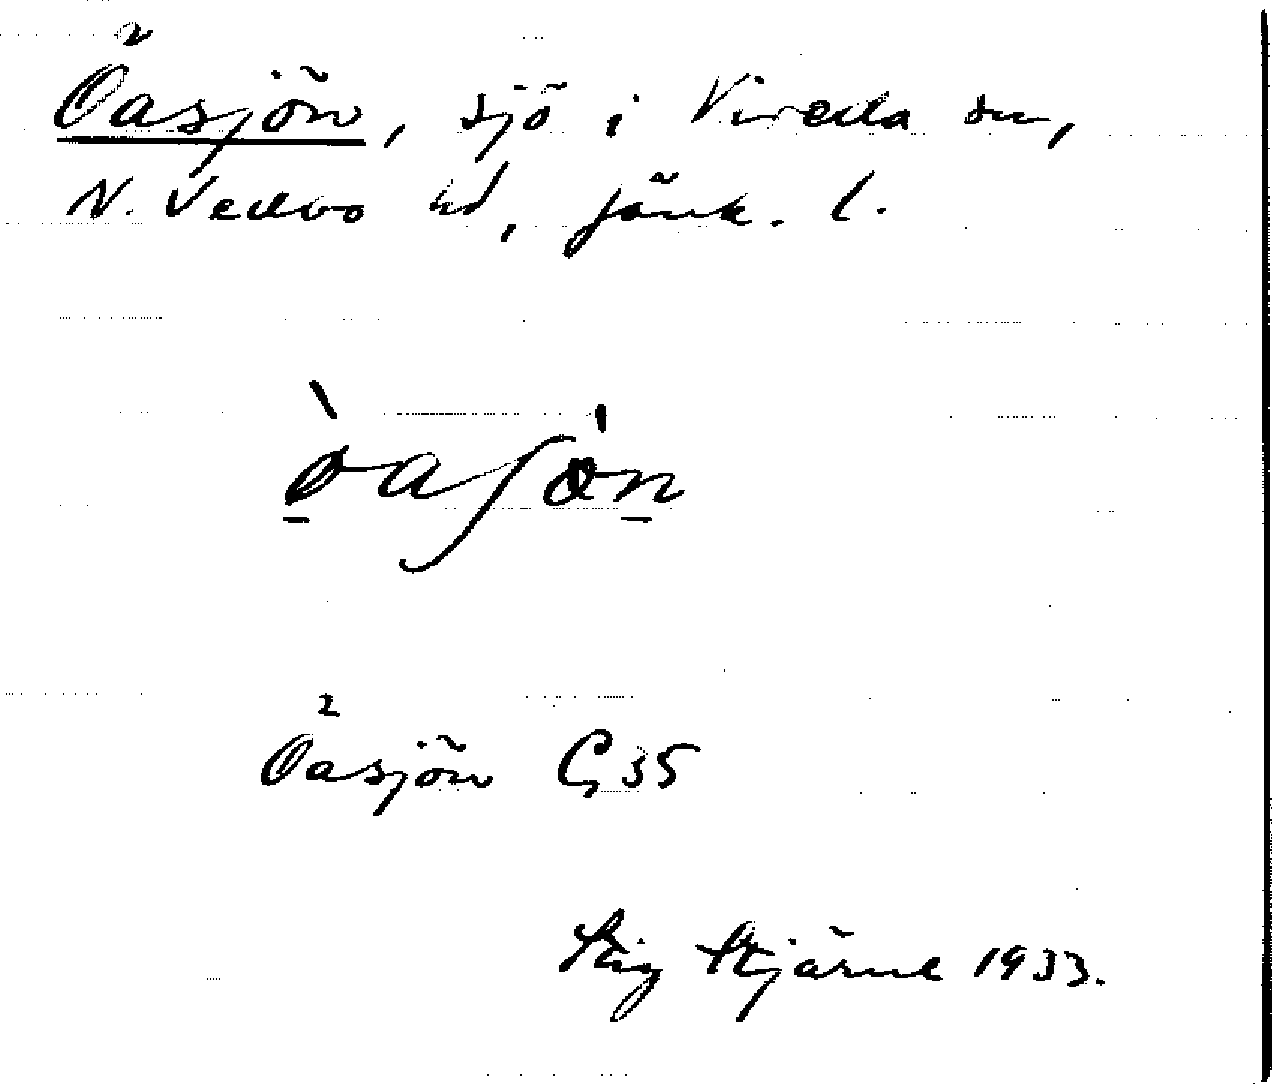 Öasjön, sjö i Vireda sn,
N. Vedbo hd, Jönk. l.
òasjön
Öasjön G 35
Stig Stjärne 1933.